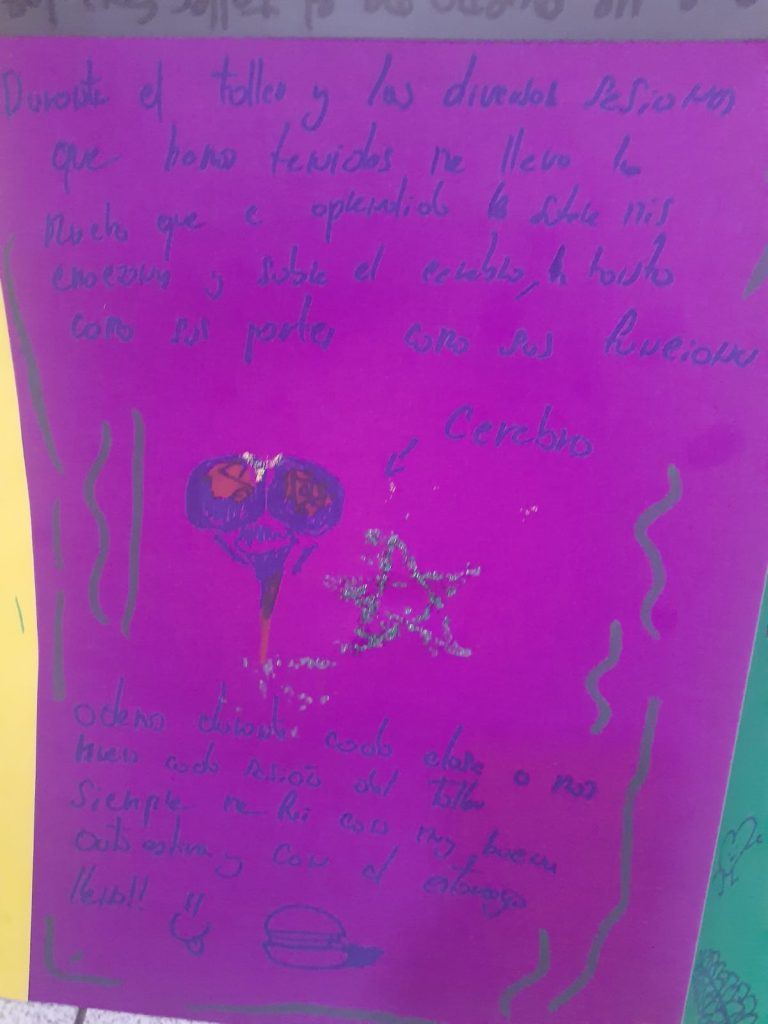 Durante el taller y las diversas sesiones
que hemos tenidos me llevo lo
mucho que e aprendido sobre mis
emociones y sobre el cerebro, tanto
como sus partes como sus funciones
Cerebro
ademas durante cada clase o mas
cada sesión del taller
siempre me fui con muy buena
autoestima y con el estomago
lleno!!